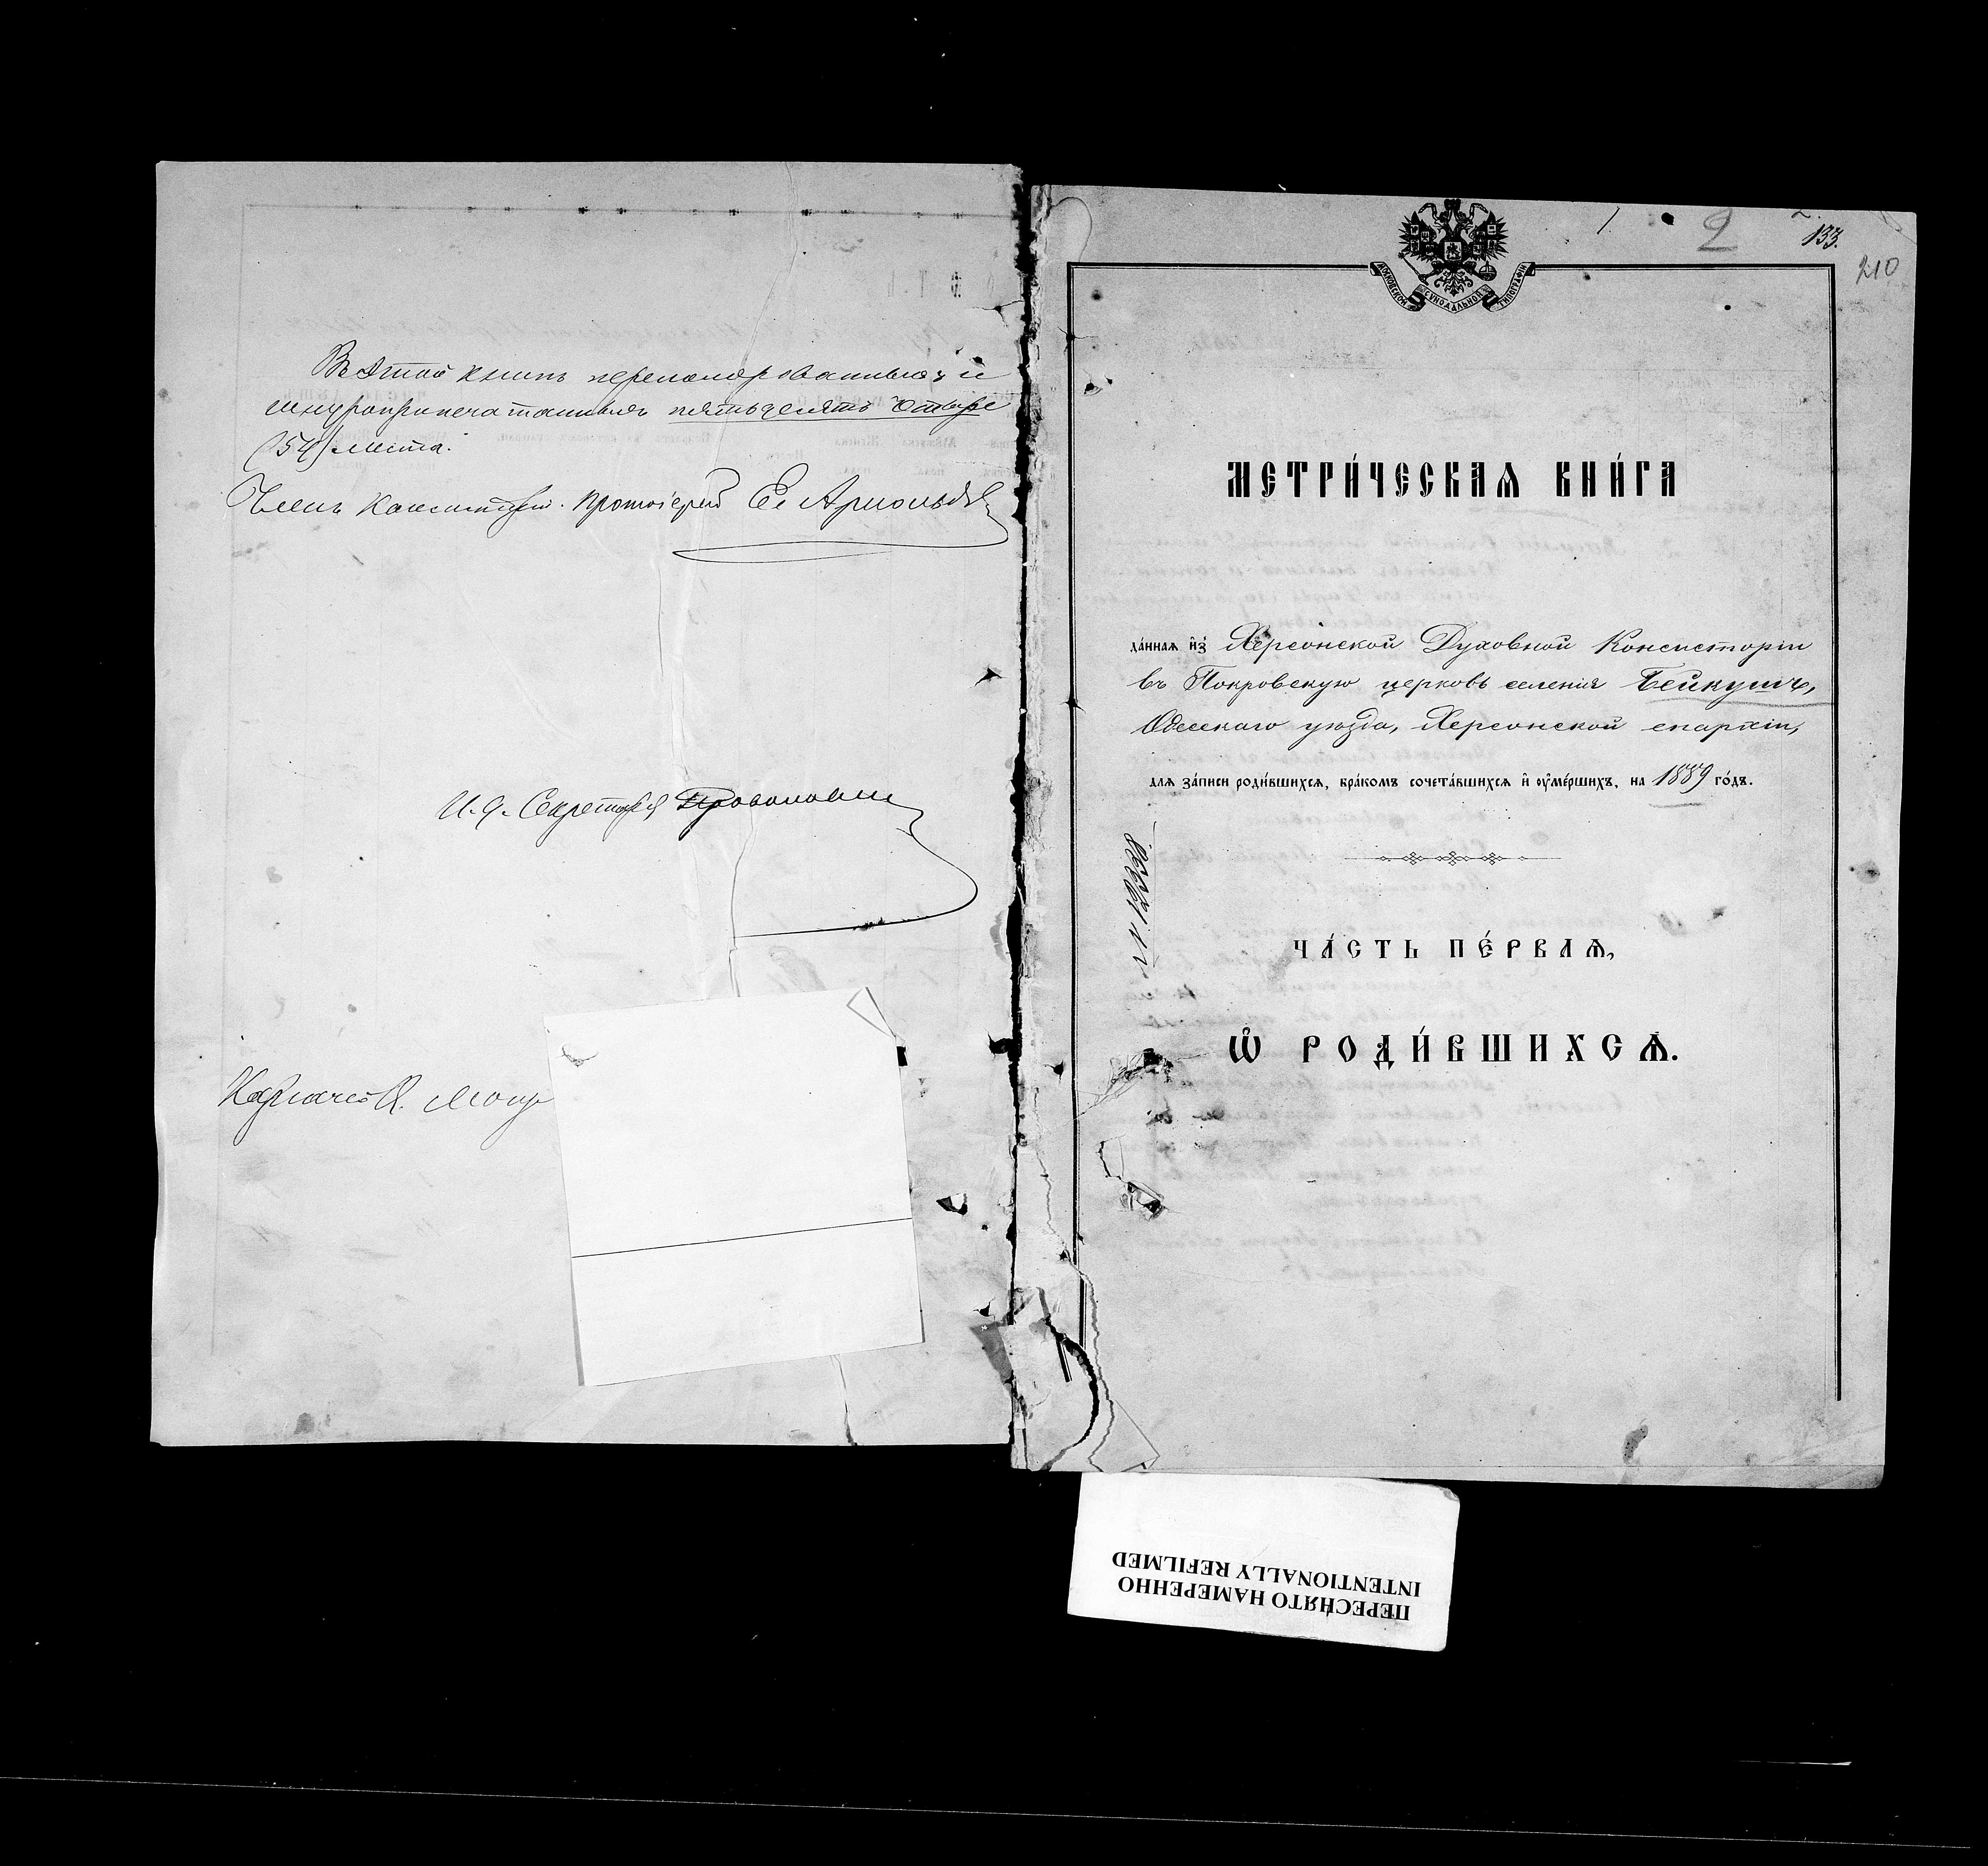 Въ этой книгѣ перенумерованныхъ и
шнуроприпечатанныхъ пятьдесятъ четыре
(54) листа.
Членъ Консисторіи. Протоіерей Ел Арнольдъ
И. д. Секретаря
1. 2 133.
210
МОСКОВСКОЙ СѴНОДАЛЬНОЙ ТИПОГРАФІИ
МЕТРИ́ЧЕСКАѦ КНИ́ГА
да́ннаѧ и҆з̾ Херсонской Духовной Консисторіи
въ Покровскую церковь селенія Бейкушъ,
Одесскаго уѣзда, Херсонской епархіи,
длѧ за́писи роди́вшихсѧ, бра́комъ сочета́вшихсѧ и҆ ѹ҆ме́ршихъ, на 1889 го́дъ.
№ 12338.
ЧА́СТЬ ПЕ́РВАѦ,
Ѡ҆ РОДИ́ВШИХСѦ.
ПЕРЕСНЯТО НАМЕРЕННО
INTENTIONALLY REFILMED